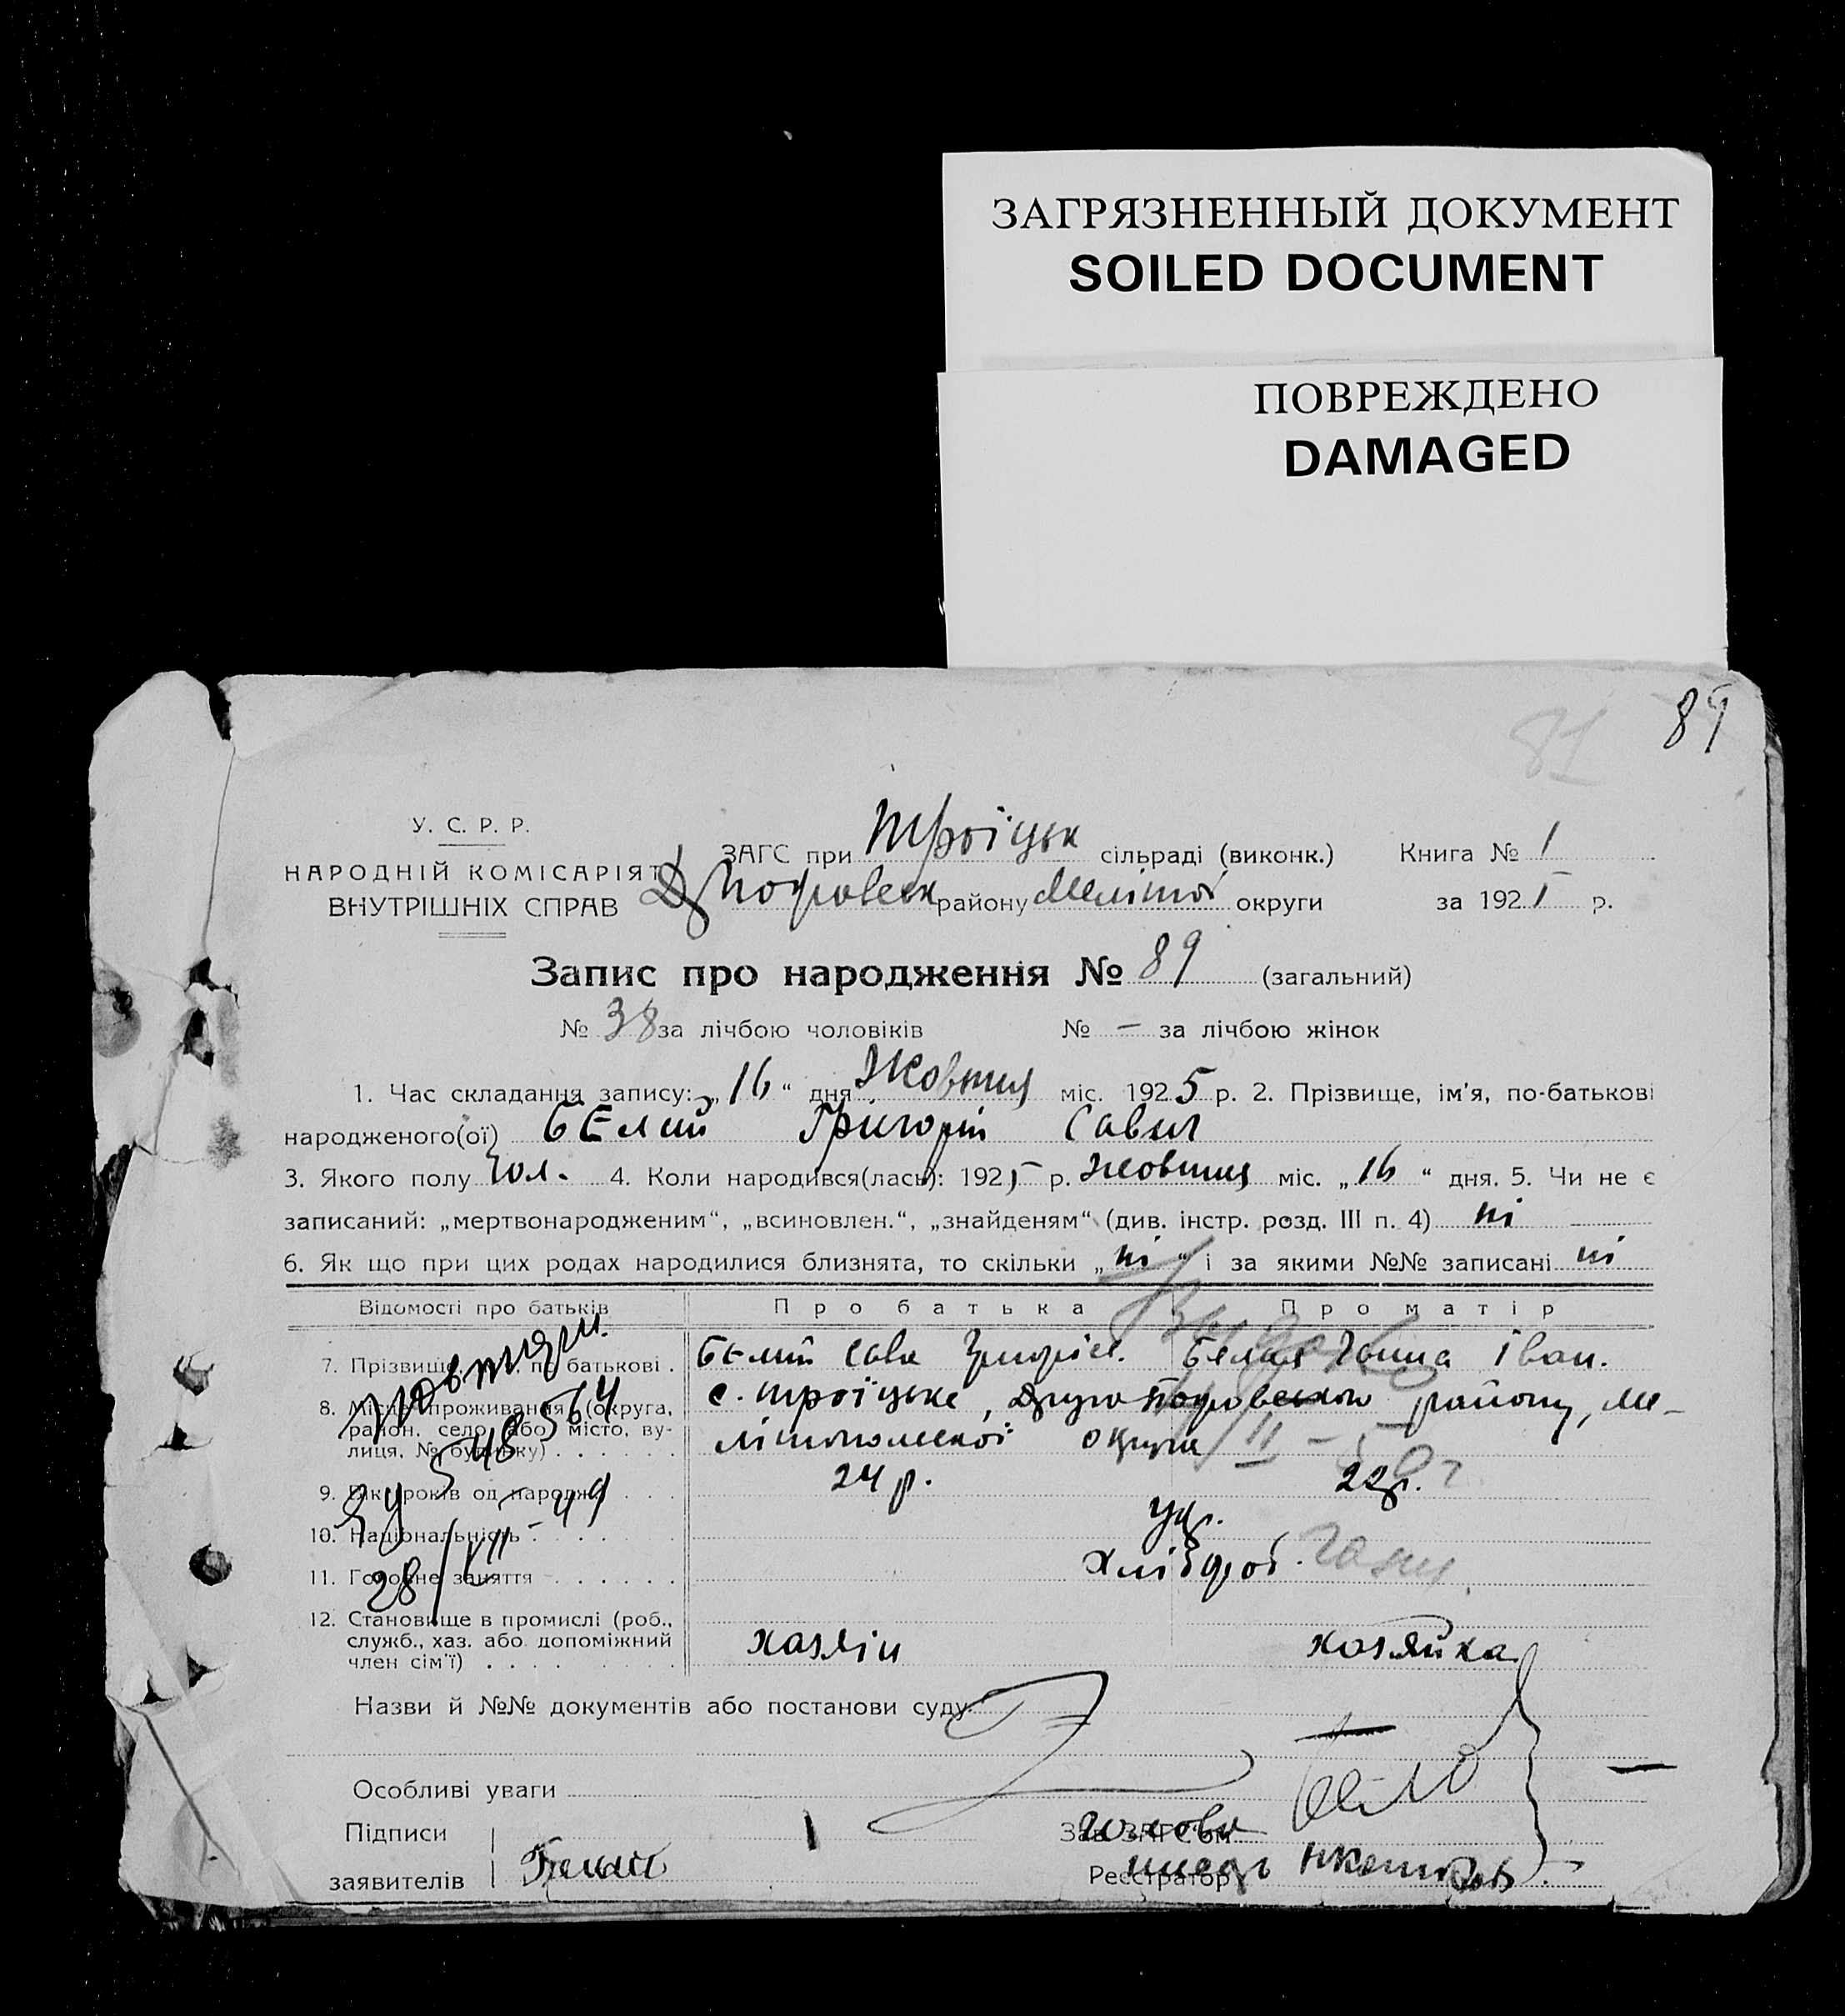 ЗАГРЯЗНЕННЫЙ ДОКУМЕНТ
SOILED DOCUMENT
ПОВРЕЖДЕНО
DAMAGED
81 89
У. С. Р. Р.
НАРОДНІЙ КОМІСАРІЯТ
ВНУТРІШНІХ СПРАВ
ЗАГС при Троїцьк сільраді (виконк.) Книга № 1
району Меліто округи за 1925 р.
Запис про народження № 89 (загальний)
№ 38 за лічбою чоловіків № — за лічбою жінок
1. Час складання запису: „16“ дня Жовтня міс. 1925 р. 2. Прізвище, ім'я, по-батькові
народженого(ої) БЕлий Григорій Савич
3. Якого полу чол. 4. Коли народився(лась): 1925 р. жовтня міс. „16“ дня. 5. Чи не є
записаний: „мертвонародженим“, „всиновлен.“, „знайденям“ (див. інстр. розд. III п. 4) ні
6. Як що при цих родах народилися близнята, то скільки „ні“ і за якими №№ записані ні
Відомості про батьків Про батька Про матір
7. Прізвище, по батькові . БЕлий Сава Григорієв. Белая Ганна Іван.
8. Місце проживання (округа, с. Троїцьке, Друго Покровского району, Ме-
район, село або місто, ву-
лиця, № будинку) . . . . . літопольської округи
9. Вік років од народж. . . . 24 р. 22 р.
10. Національність . . . . . Укр.
11. Головне заняття . . . . . . Хлібороб.
12. Становище в промислі (роб.,
служб., хаз. або допоміжний хазяін хозяйка
член сім'ї) . . . . . .
Назви й №№ документів або постанови суду
Особливі уваги
Підписи Зав. ЗАГС'ом Голова
заявителів Белий Реєстратор